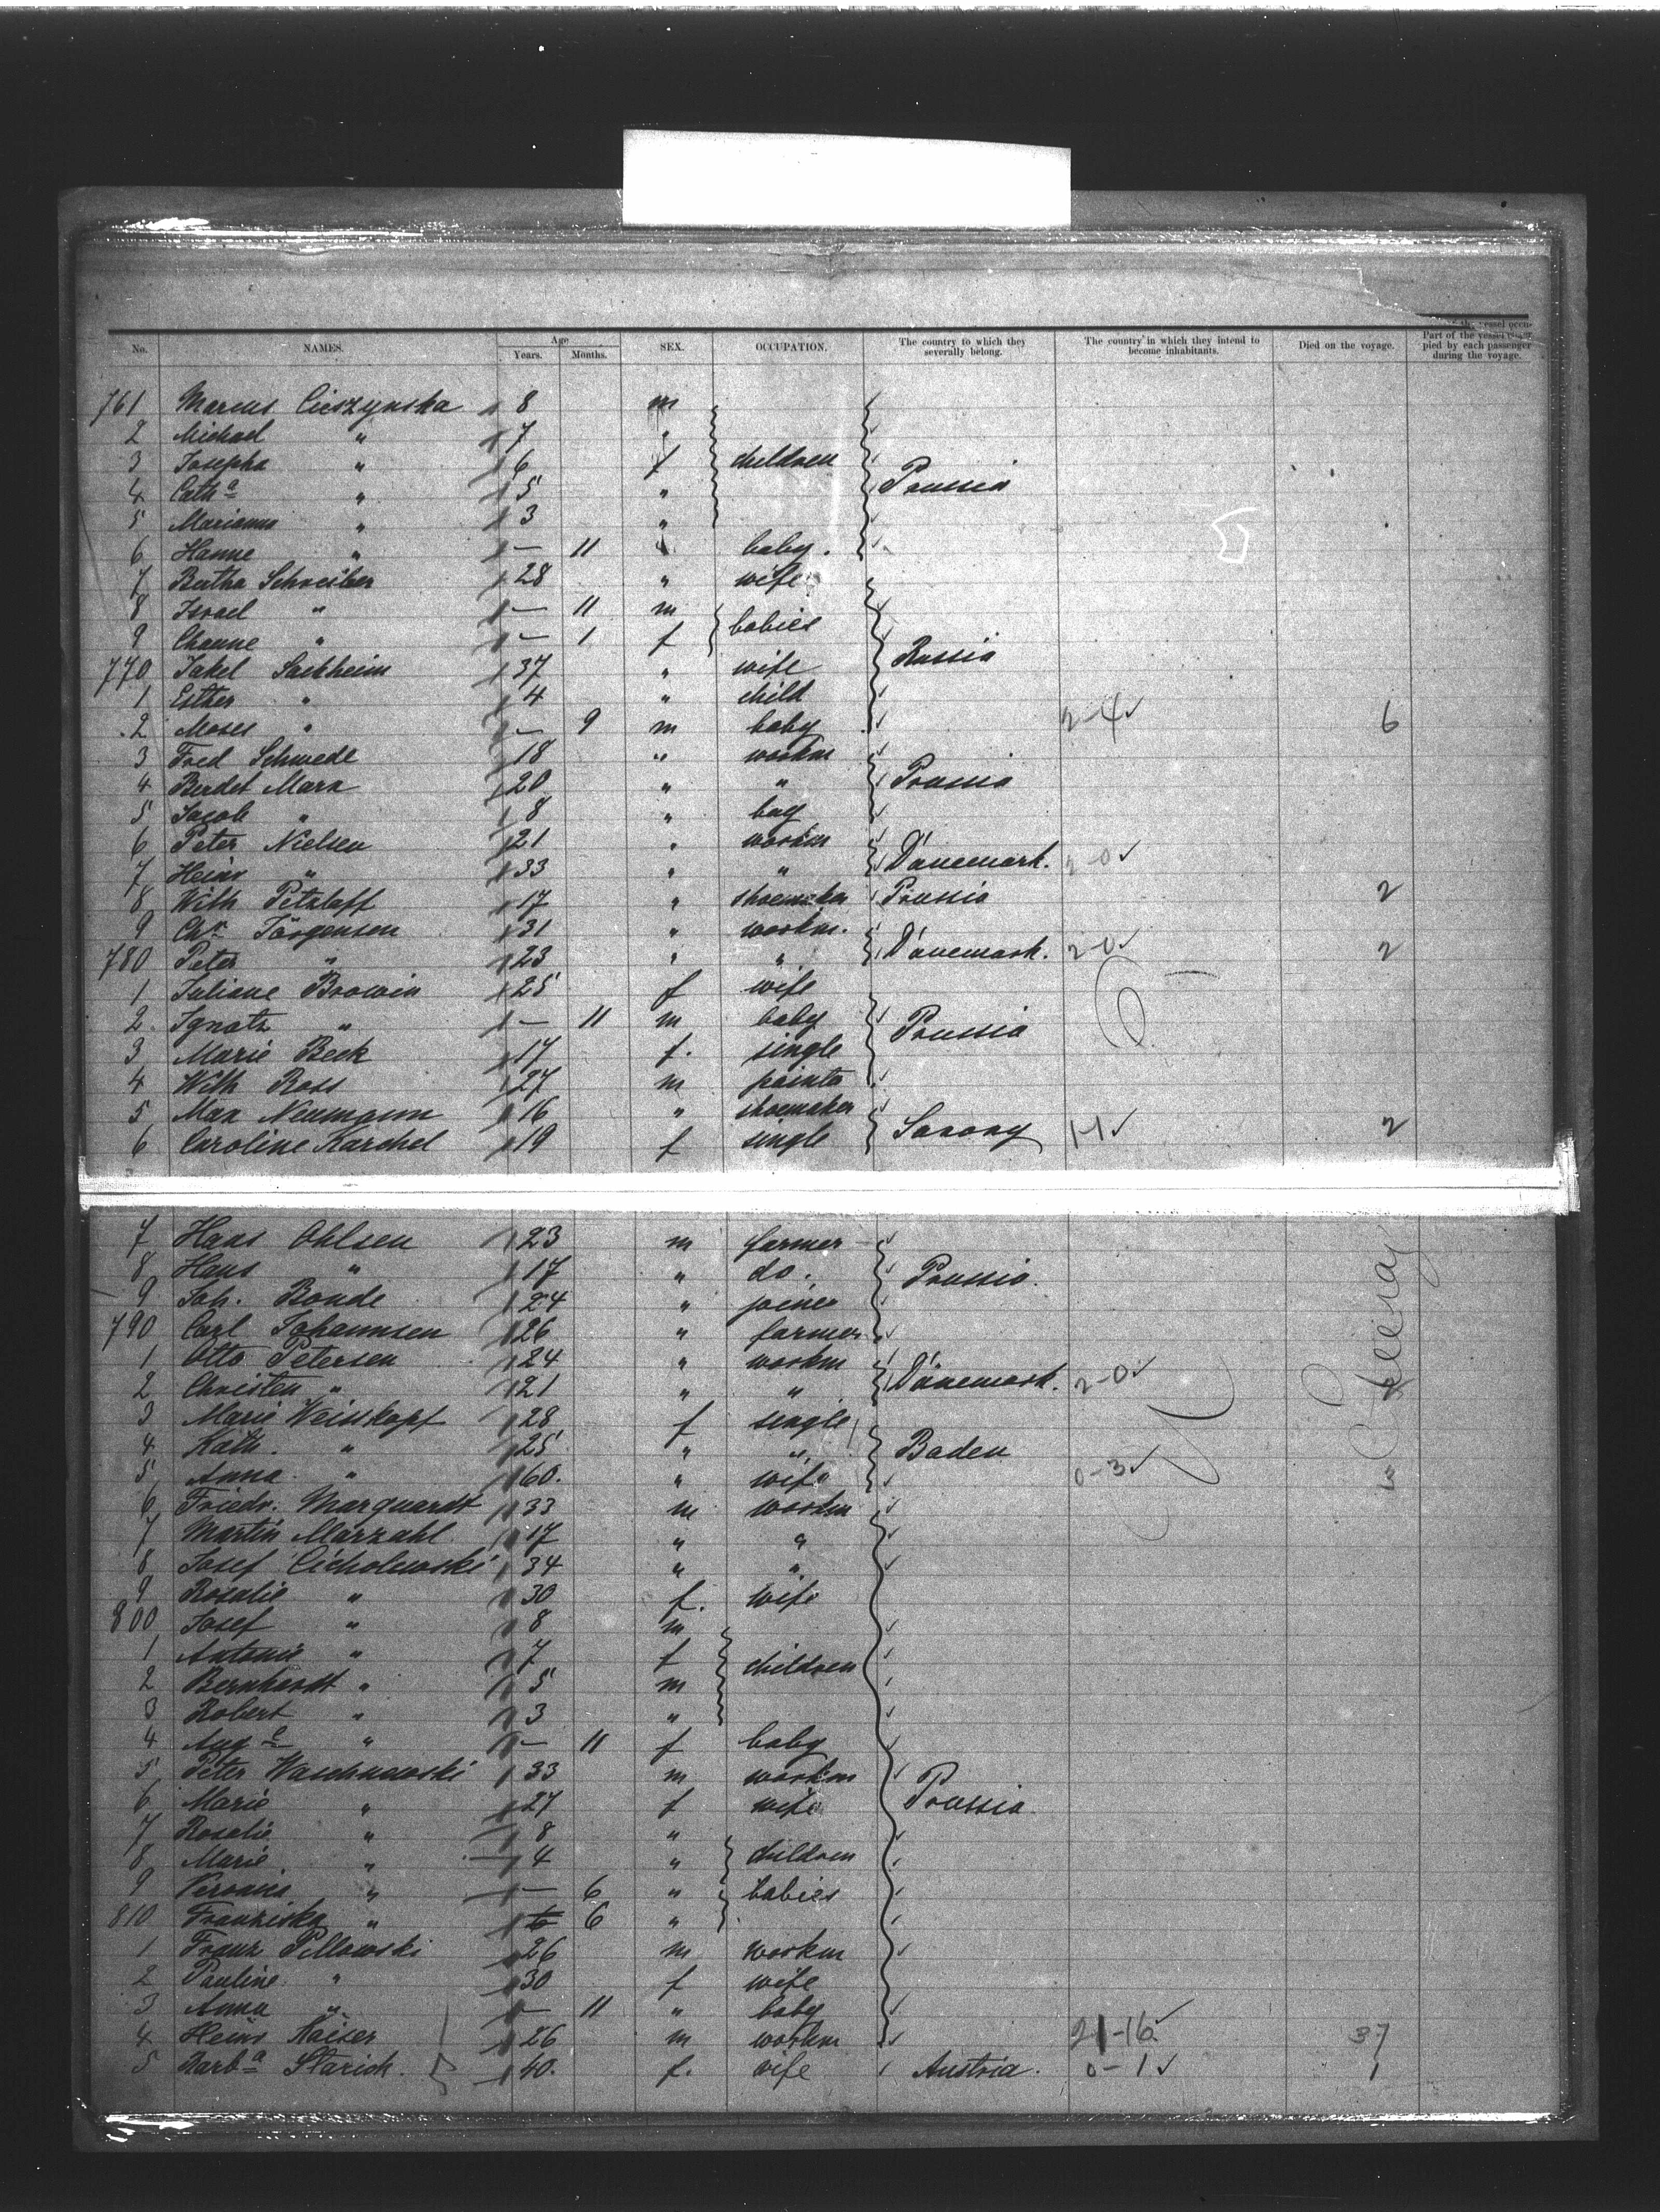 No. NAMES. Age Years. Months. SEX. OCCUPATION. The country to which they severally belong. The country in which they intend to become inhabitants. Died on the voyage. Part of the vessel occupied by each passenger during the voyage.
761 Marcus Cieszynska 8 m
2 Michael " 7 "
3 Josepha " 6 f children
4 Cath a " 5 " Prussia
5 Marianna " 3 "
6 Hanne " — 11 " baby.
7 Bertha Schreiber 28 " wife
8 Israel " — 11 m babies
9 Channe " — 1 f
770 Jakel Sackheim 37 " wife Russia
1 Esther " 4 " child
2 Moses " — 9 m baby 2-4 6
3 Fred Schwede 18 " workm
4 Berdet Marx 20 " " Prussia
5 Jacob " 8 " boy
6 Peter Nielsen 21 " workm
7 Heinr " 33 " " Dänemark. 2-0
8 Wilh Petzlaff 17 " shoemaker Prussia 2
9 Chr. Jörgensen 31 " workm.
780 Peter " 23 " " Dänemark. 2-0 2
1 Juliane Browin 25 f wife
2 Ignatz " — 11 m baby Prussia
3 Marie Beck 17 f. single
4 Wilh Ross 27 m painter
5 Max Neumann 16 " shoemaker
6 Caroline Karchel 19 f single Saxony 1-1 2
7 Hans Ohlsen 23 m farmer
8 Hans " 17 " do. Prussia.
9 Joh. Bonde 24 " joiner
790 Carl Johannsen 26 " farmer
1 Otto Petersen 24 " workm
2 Christen " 21 " " Dänemark. 2-0 2
3 Marie Weisskopf 28 f single
4 Kath. " 25 " " Baden
5 Anna " 60. " wife 0-3 3
6 Friedr. Marquardt 33 m workm
7 Martin Marzahl 17 " "
8 Josef Cicholewski 34 " "
9 Rosalie " 30 f. wife
800 Josef " 8 m
1 Antonie " 7 f children
2 Bernhardt " 5 m
3 Robert " 3 "
4 Aug e " — 11 f baby
5 Peter Waschnowski 33 m workm
6 Marie " 27 f wife Prussia
7 Rosalie " 8 "
8 Marie " 4 " children
9 Veronica " — 6 " babies
810 Franziska " 6 6 "
1 Franz Pellowski 26 m workm
2 Pauline " 30 f wife
3 Anna " — 11 " baby
4 Heinr Kaiser 26 m workm 21-16 37
5 Barb a Starich. 40. f. wife Austria. 0-1 1